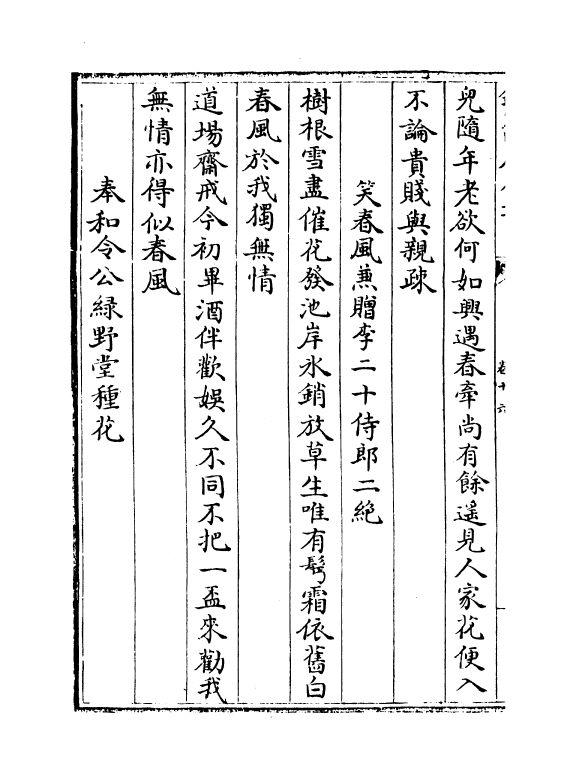 卷十六
皃隨年老欲何如興遇春牽尚有餘遥見人家花便入
不論貴賤與親疎
笑春風兼贈李二十侍郎二絶
樹根雪盡催花發池岸氷銷放草生唯有鬂霜依舊白
春風於我獨無情
道塲齋戒今初畢酒伴歡娱久不同不把一盃來勸我
無情亦得似春風
奉和令公緑野堂種花